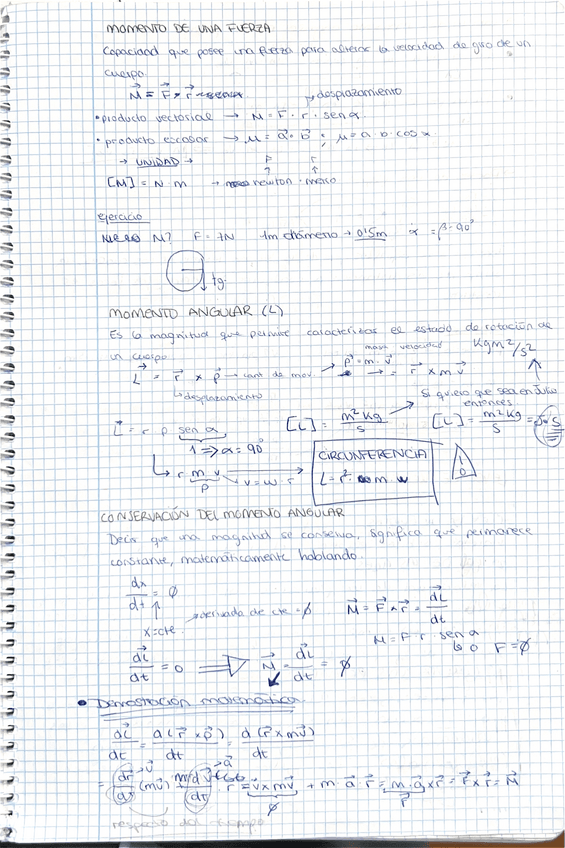 MOMENTO DE UNA FUERZA
Capacidad que posee una fuerza para alterar la velocidad de giro de un
cuerpo.
M⃗ = F⃗ × r⃗
→ desplazamiento
• producto vectorial → M = F · r · sen α
• producto escalar → μ = a⃗ · b⃗ ; μ = a · b · cos α
→ UNIDAD →
F r
[M] = N · m → newton · metro
ejercicio
M? F = 1N 1m diámetro → 0'5m α = β = 90°
fg
MOMENTO ANGULAR (L)
Es la magnitud que permite caracterizar el estado de rotación de
un cuerpo
masa velocidad
Kg m²/s²
L⃗ = r⃗ × p⃗ → cant de mov. p⃗ = m · v⃗ → = r⃗ × m v⃗
↳ desplazamiento
Si quiero que sea en Julio
entonces
L⃗ = r p sen α [L] = m² Kg / s [L] = m² Kg / s = J · s
1 ⇒ α = 90°
↳ r m v v = w · r
p
CIRCUNFERENCIA
L = r² · m w
CONSERVACIÓN DEL MOMENTO ANGULAR
Decir que una magnitud se conserva, significa que permanece
constante, matemáticamente hablando.
dx/dt = ∅
→ derivada de cte = ∅ M⃗ = F⃗ ∧ r⃗ = dL⃗/dt
x = cte
M = F r sen α
↳ 0 F = ∅
dL⃗/dt = 0 ⟹ M⃗ = dL⃗/dt = ∅
• Demostración matemática
dL⃗/dt = d(r⃗ × p⃗)/dt = d(r⃗ × m v⃗)/dt
= dr⃗/dt (m v⃗) + m d v⃗/dt · r = v⃗ × m v⃗ + m · a⃗ · r⃗ = m · a⃗ × r⃗ = F⃗ × r⃗ = M⃗
∅ F
respecto del tiempo